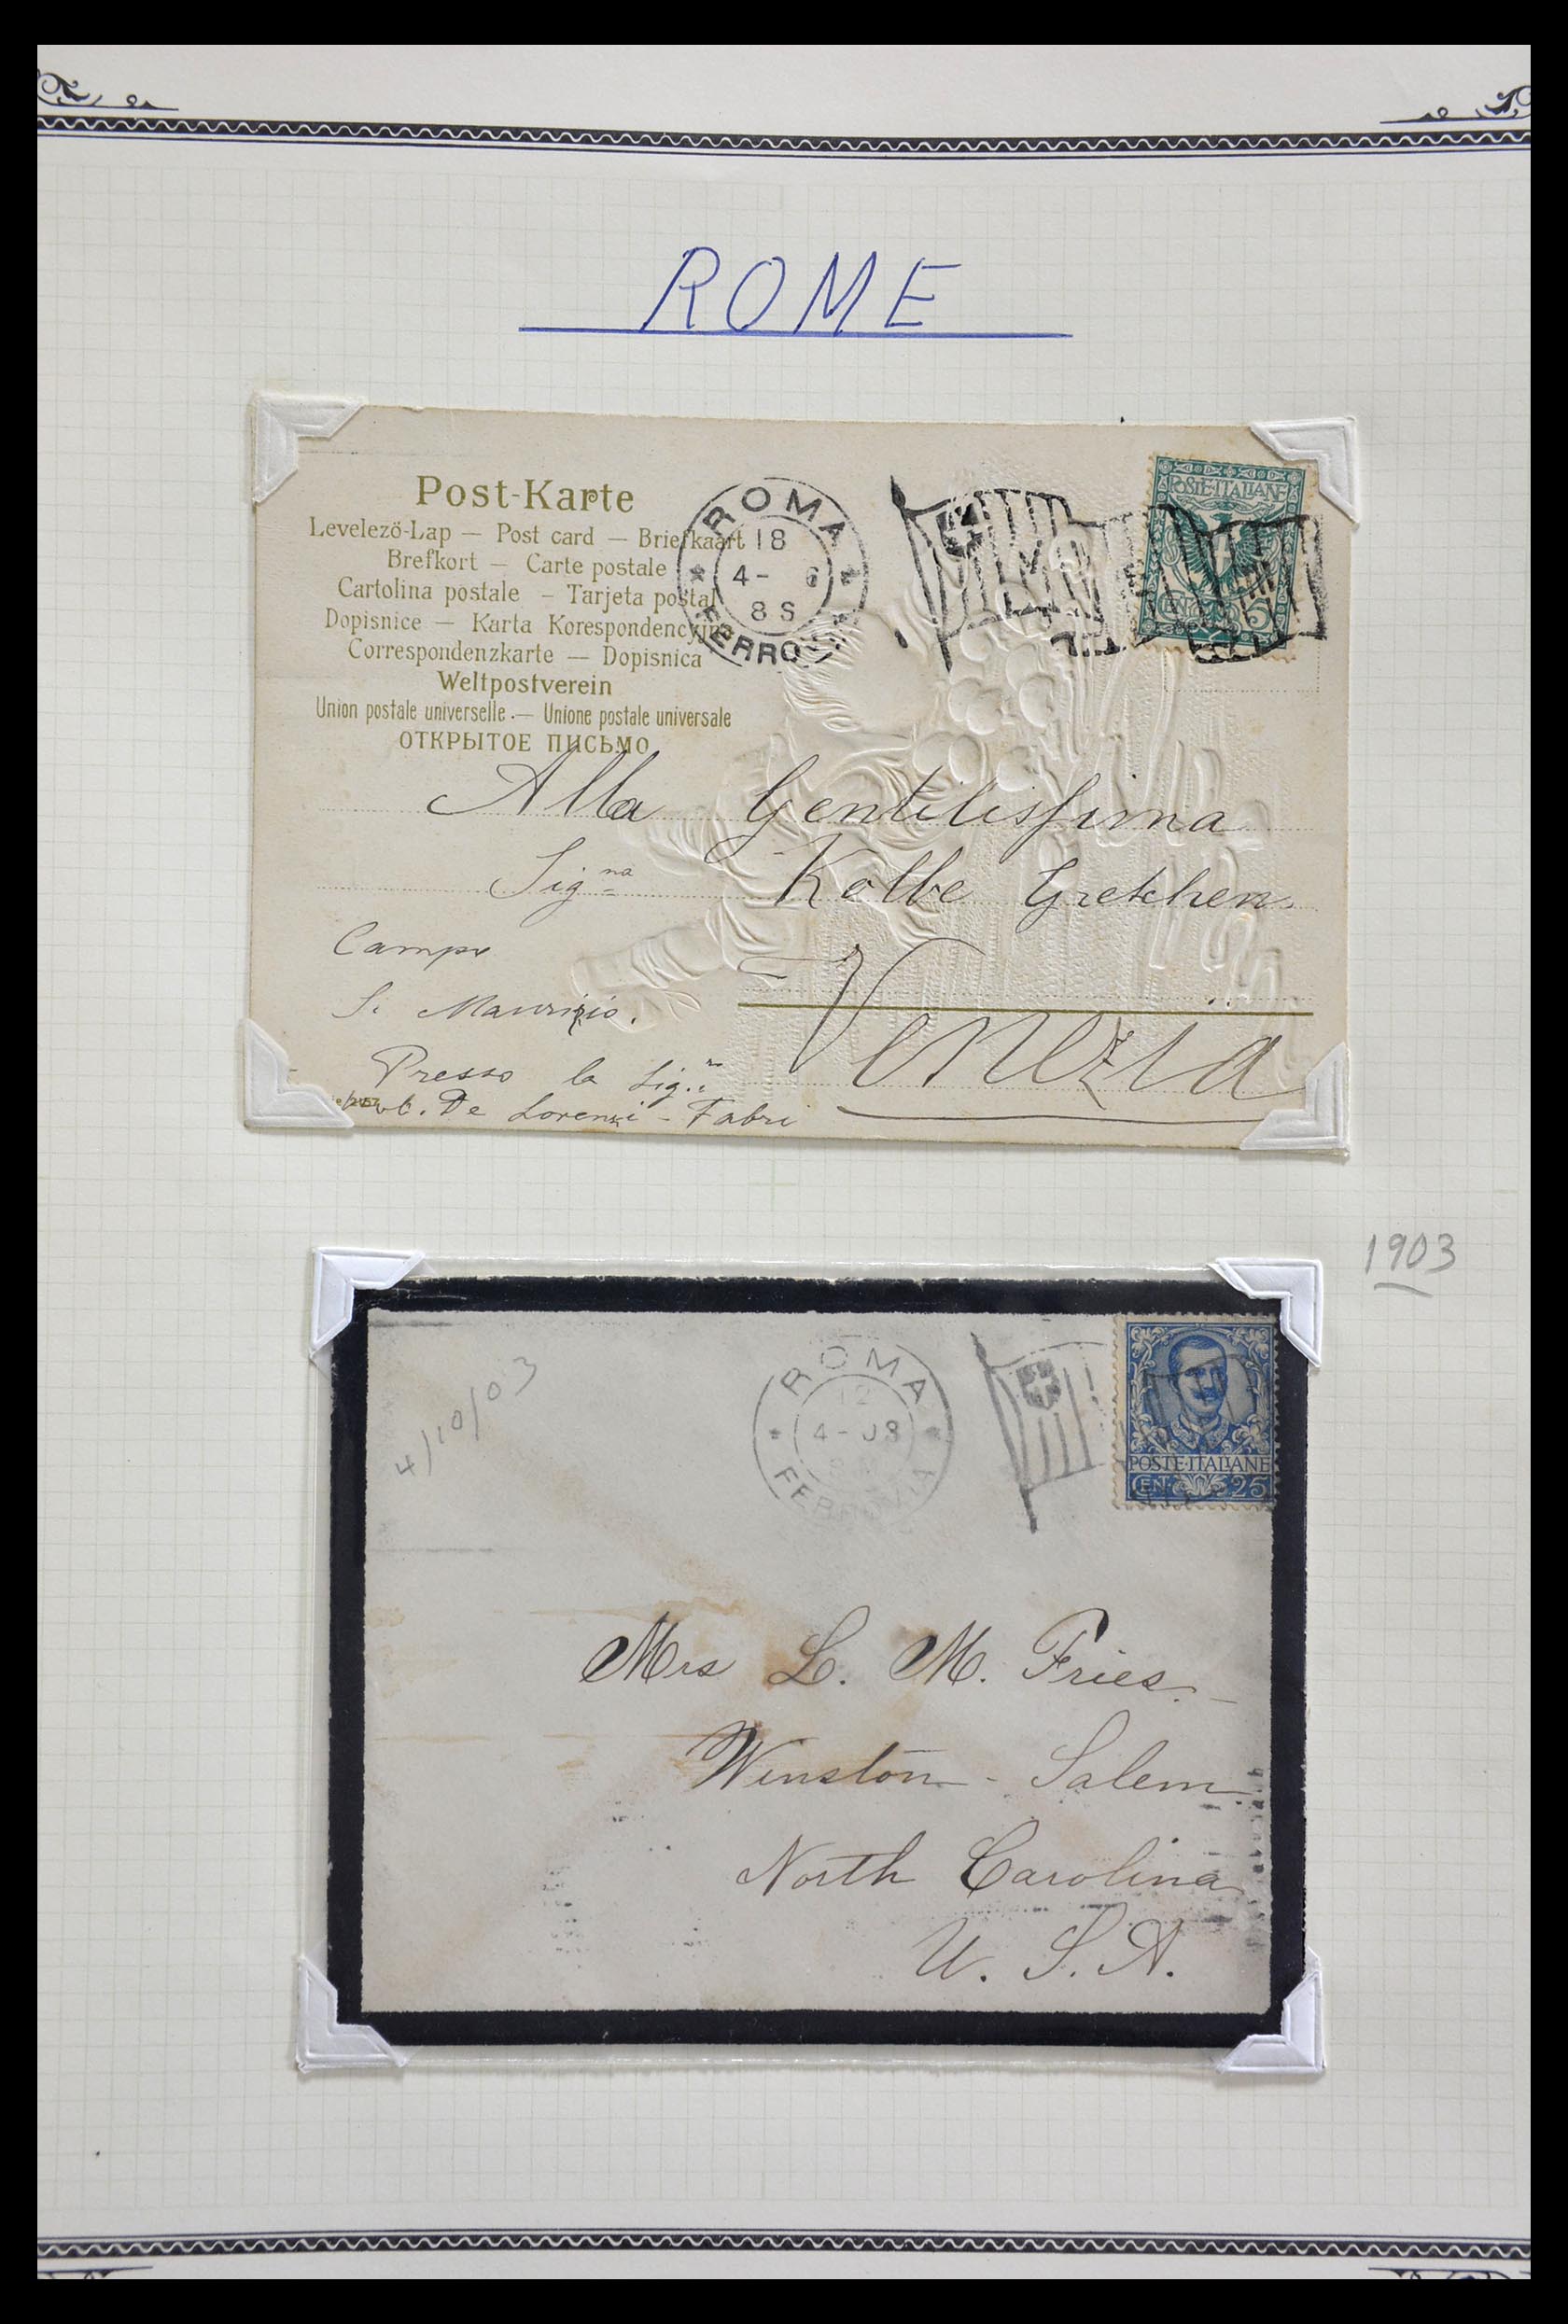 ROME
Post-Karte
Levelező-Lap — Post card — Briefkaart
Brefkort — Carte postale
Cartolina postale – Tarjeta postal
Dopisnice — Karta Korespondencyjna
Correspondenzkarte — Dopisnica
Weltpostverein
Union postale universelle.— Unione postale universale
ОТКРЫТОЕ ПИСЬМО
ROMA
18
4- 6
8 S
FERROVIA
POSTE·ITALIANE
CEN. 5
Alla Gentilissima
Signa Kolbe Gretchen.
Campo
S. Maurizio.
Venezia
Presso la Sig.
De Lorenzi - Fabri
1903
4/10/03
ROMA
12
4-03
FERROVIA
POSTE·ITALIANE
CEN. 25
Mrs L. M. Fries.
Winston - Salem
North Carolina
U. S. A.